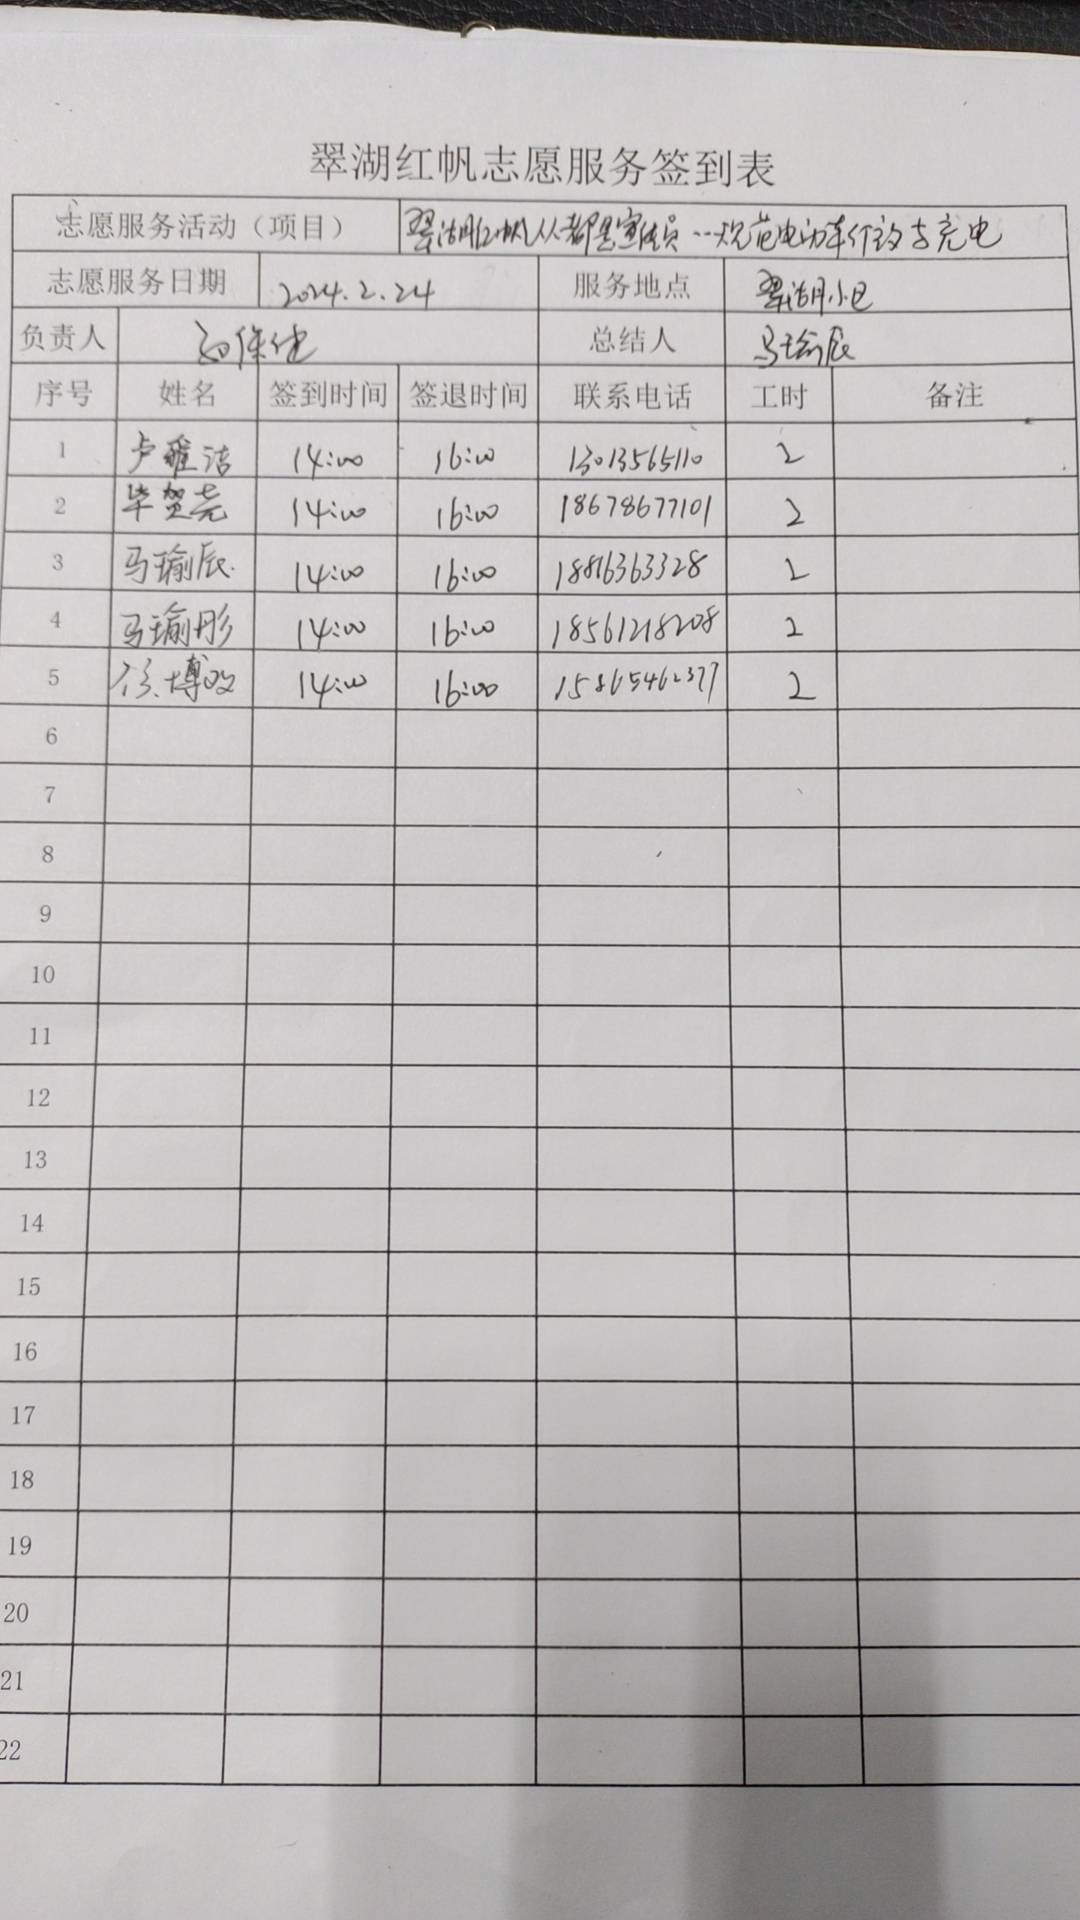 翠湖红帆志愿服务签到表
志愿服务活动（项目） 翠湖红帆人人都是宣传员--规范电动车停放与充电
志愿服务日期 2024.2.24 服务地点 翠湖小区
负责人 总结人 马瑜辰
序号 姓名 签到时间 签退时间 联系电话 工时 备注
1 卢雅洁 14:00 16:00 13013565110 2
2 毕贺尧 14:00 16:00 18678677101 2
3 马瑜辰 14:00 16:00 18816363328 2
4 马瑜彤 14:00 16:00 18561218208 2
5 徐博文 14:00 16:00 15865462377 2
6
7
8
9
10
11
12
13
14
15
16
17
18
19
20
21
22